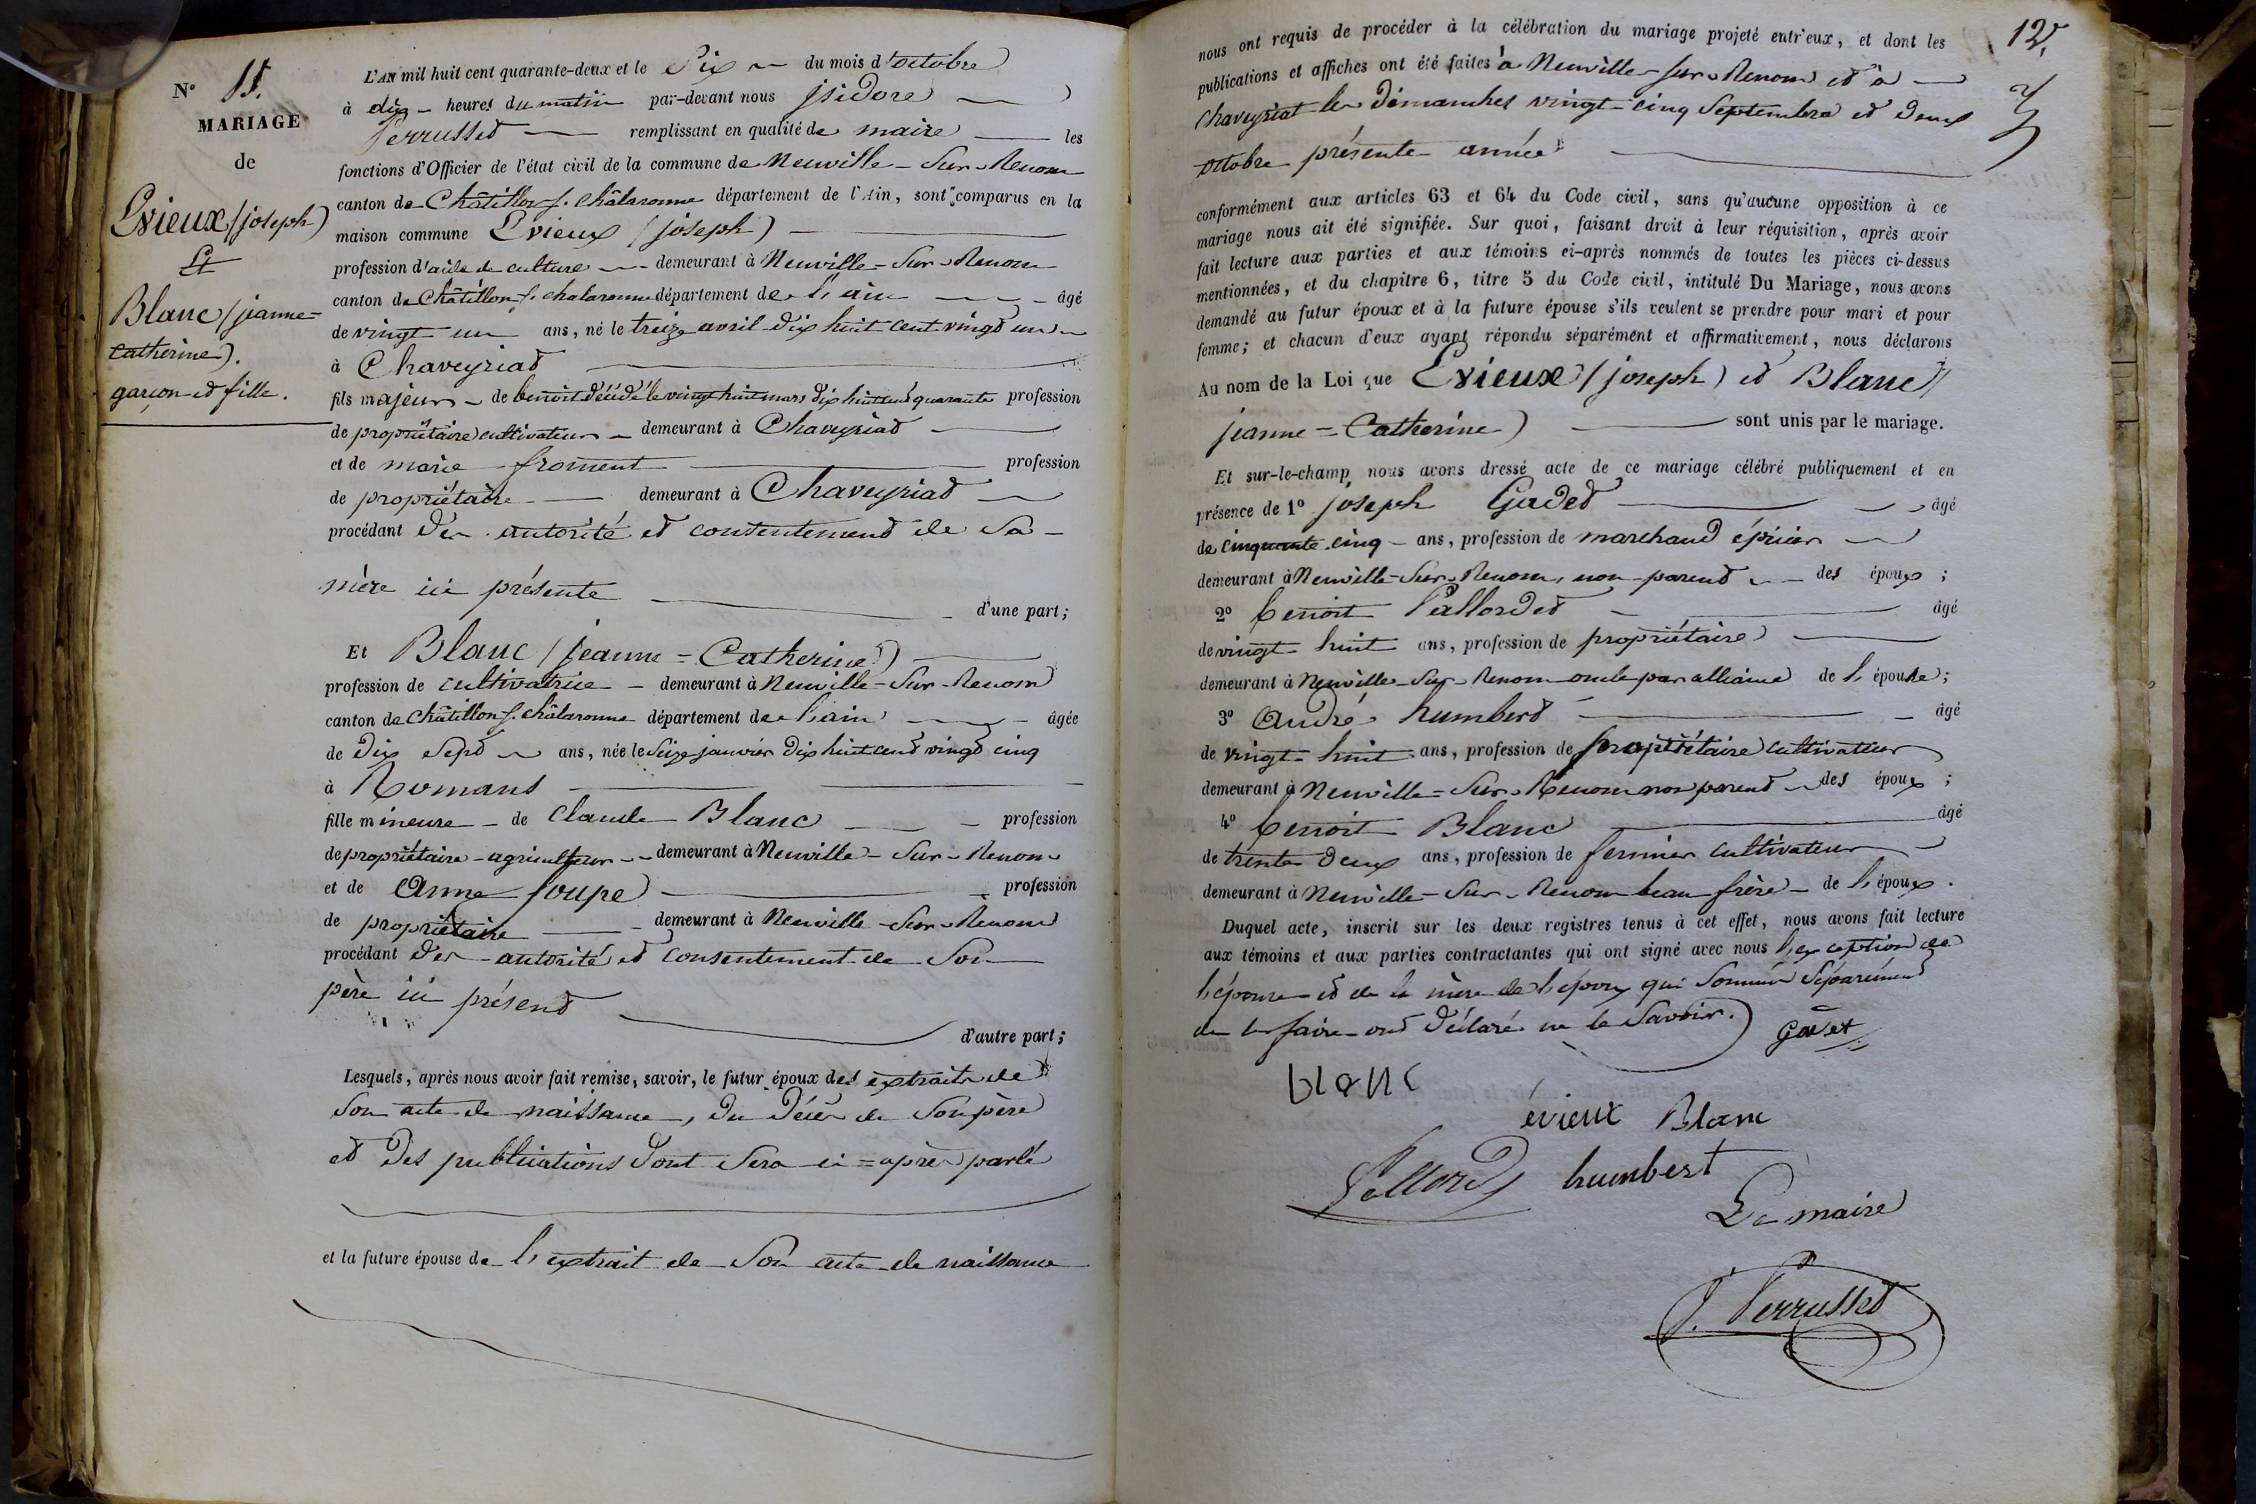 N° 11.
MARIAGE
de
Evieux (joseph)
Et
Blanc (jeanne=
Catherine).
garçon et fille.
L'AN mil huit cent quarante-deux et le Six du mois d'octobre
à dix heures du matin par-devant nous jsidore
Perrusset remplissant en qualité de maire les
fonctions d'Officier de l'état civil de la commune de Neuville-Sur-Renom
canton de Châtillon s. châlaronne département de l'Ain, sont comparus en la
maison commune Evieux (joseph)
profession d'aide de culture demeurant à Neuville-Sur-Renom
canton de Châtillon s. chalaronne département de l'ain âgé
de vingt un ans, né le treize avril dix huit cent vingt un
à Chaveyriat
fils majeur de benoit décédé le vingt huit mars dix huit cent quarante profession
de propriétaire cultivateur demeurant à Chaveyriat
et de marie froment profession
de propriétaire demeurant à Chaveyriat
procédant de autorité et consentement de Sa
mère ici présente
d'une part;
Et Blanc (jeanne=Catherine)
profession de cultivatrice demeurant à Neuville-Sur-Renom
canton de Châtillon s. châlaronne département de l'ain âgée
de Dix Sept ans, née le Seize janvier Dix huit cent vingt cinq
à Romans
fille mineure de Claude Blanc profession
de propriétaire-agriculteur demeurant à Neuville-Sur-Renom
et de Anne foupe profession
de propriétaire demeurant à Neuville-Sur-Renom
procédant de autorité et consentement de Son
père ici présent
d'autre part;
Lesquels, après nous avoir fait remise, savoir, le futur époux des extraits de
Son acte de naissance, du Décès de Son père
et Des publications dont Sera ci=après parlé
et la future épouse de l'extrait de Son acte de naissance
12.
nous ont requis de procéder à la célébration du mariage projeté entr'eux, et dont les
publications et affiches ont été faites à Neuville-Sur-Renom et à
Chaveyriat les dimanches vingt-cinq Septembre et Deux
octobre présente année
conformément aux articles 63 et 64 du Code civil, sans qu'aucune opposition à ce
mariage nous ait été signifiée. Sur quoi, faisant droit à leur réquisition, après avoir
fait lecture aux parties et aux témoins ci-après nommés de toutes les pièces ci-dessus
mentionnées, et du chapitre 6, titre 5 du Code civil, intitulé Du Mariage, nous avons
demandé au futur époux et à la future épouse s'ils veulent se prendre pour mari et pour
femme; et chacun d'eux ayant répondu séparément et affirmativement, nous déclarons
Au nom de la Loi que Evieux (joseph) et Blanc
jeanne=Catherine) sont unis par le mariage.
Et sur-le-champ, nous avons dressé acte de ce mariage célébré publiquement et en
présence de 1° joseph Gadet âgé
de cinquante cinq ans, profession de marchand épicier
demeurant à Neuville-Sur-Renom, non parent des époux;
2° benoit Pallordet âgé
de vingt huit ans, profession de propriétaire
demeurant à Neuville-Sur-Renom oncle par alliance de l'épouse;
3° André humbert âgé
de vingt huit ans, profession de propriétaire cultivateur
demeurant à Neuville=Sur-Renom non parent des époux;
4° benoit Blanc âgé
de trente Deux ans, profession de fermier cultivateur
demeurant à Neuville-Sur-Renom beau frère de l'époux.
Duquel acte, inscrit sur les deux registres tenus à cet effet, nous avons fait lecture
aux témoins et aux parties contractantes qui ont signé avec nous l'exception de
l'épouse et de la mère de l'époux qui Sommées Séparément
de le faire ont Déclaré ne le Savoir. Gadet
blanc
évieux Blanc
Pallord humbert
Le maire
J. Perrusset